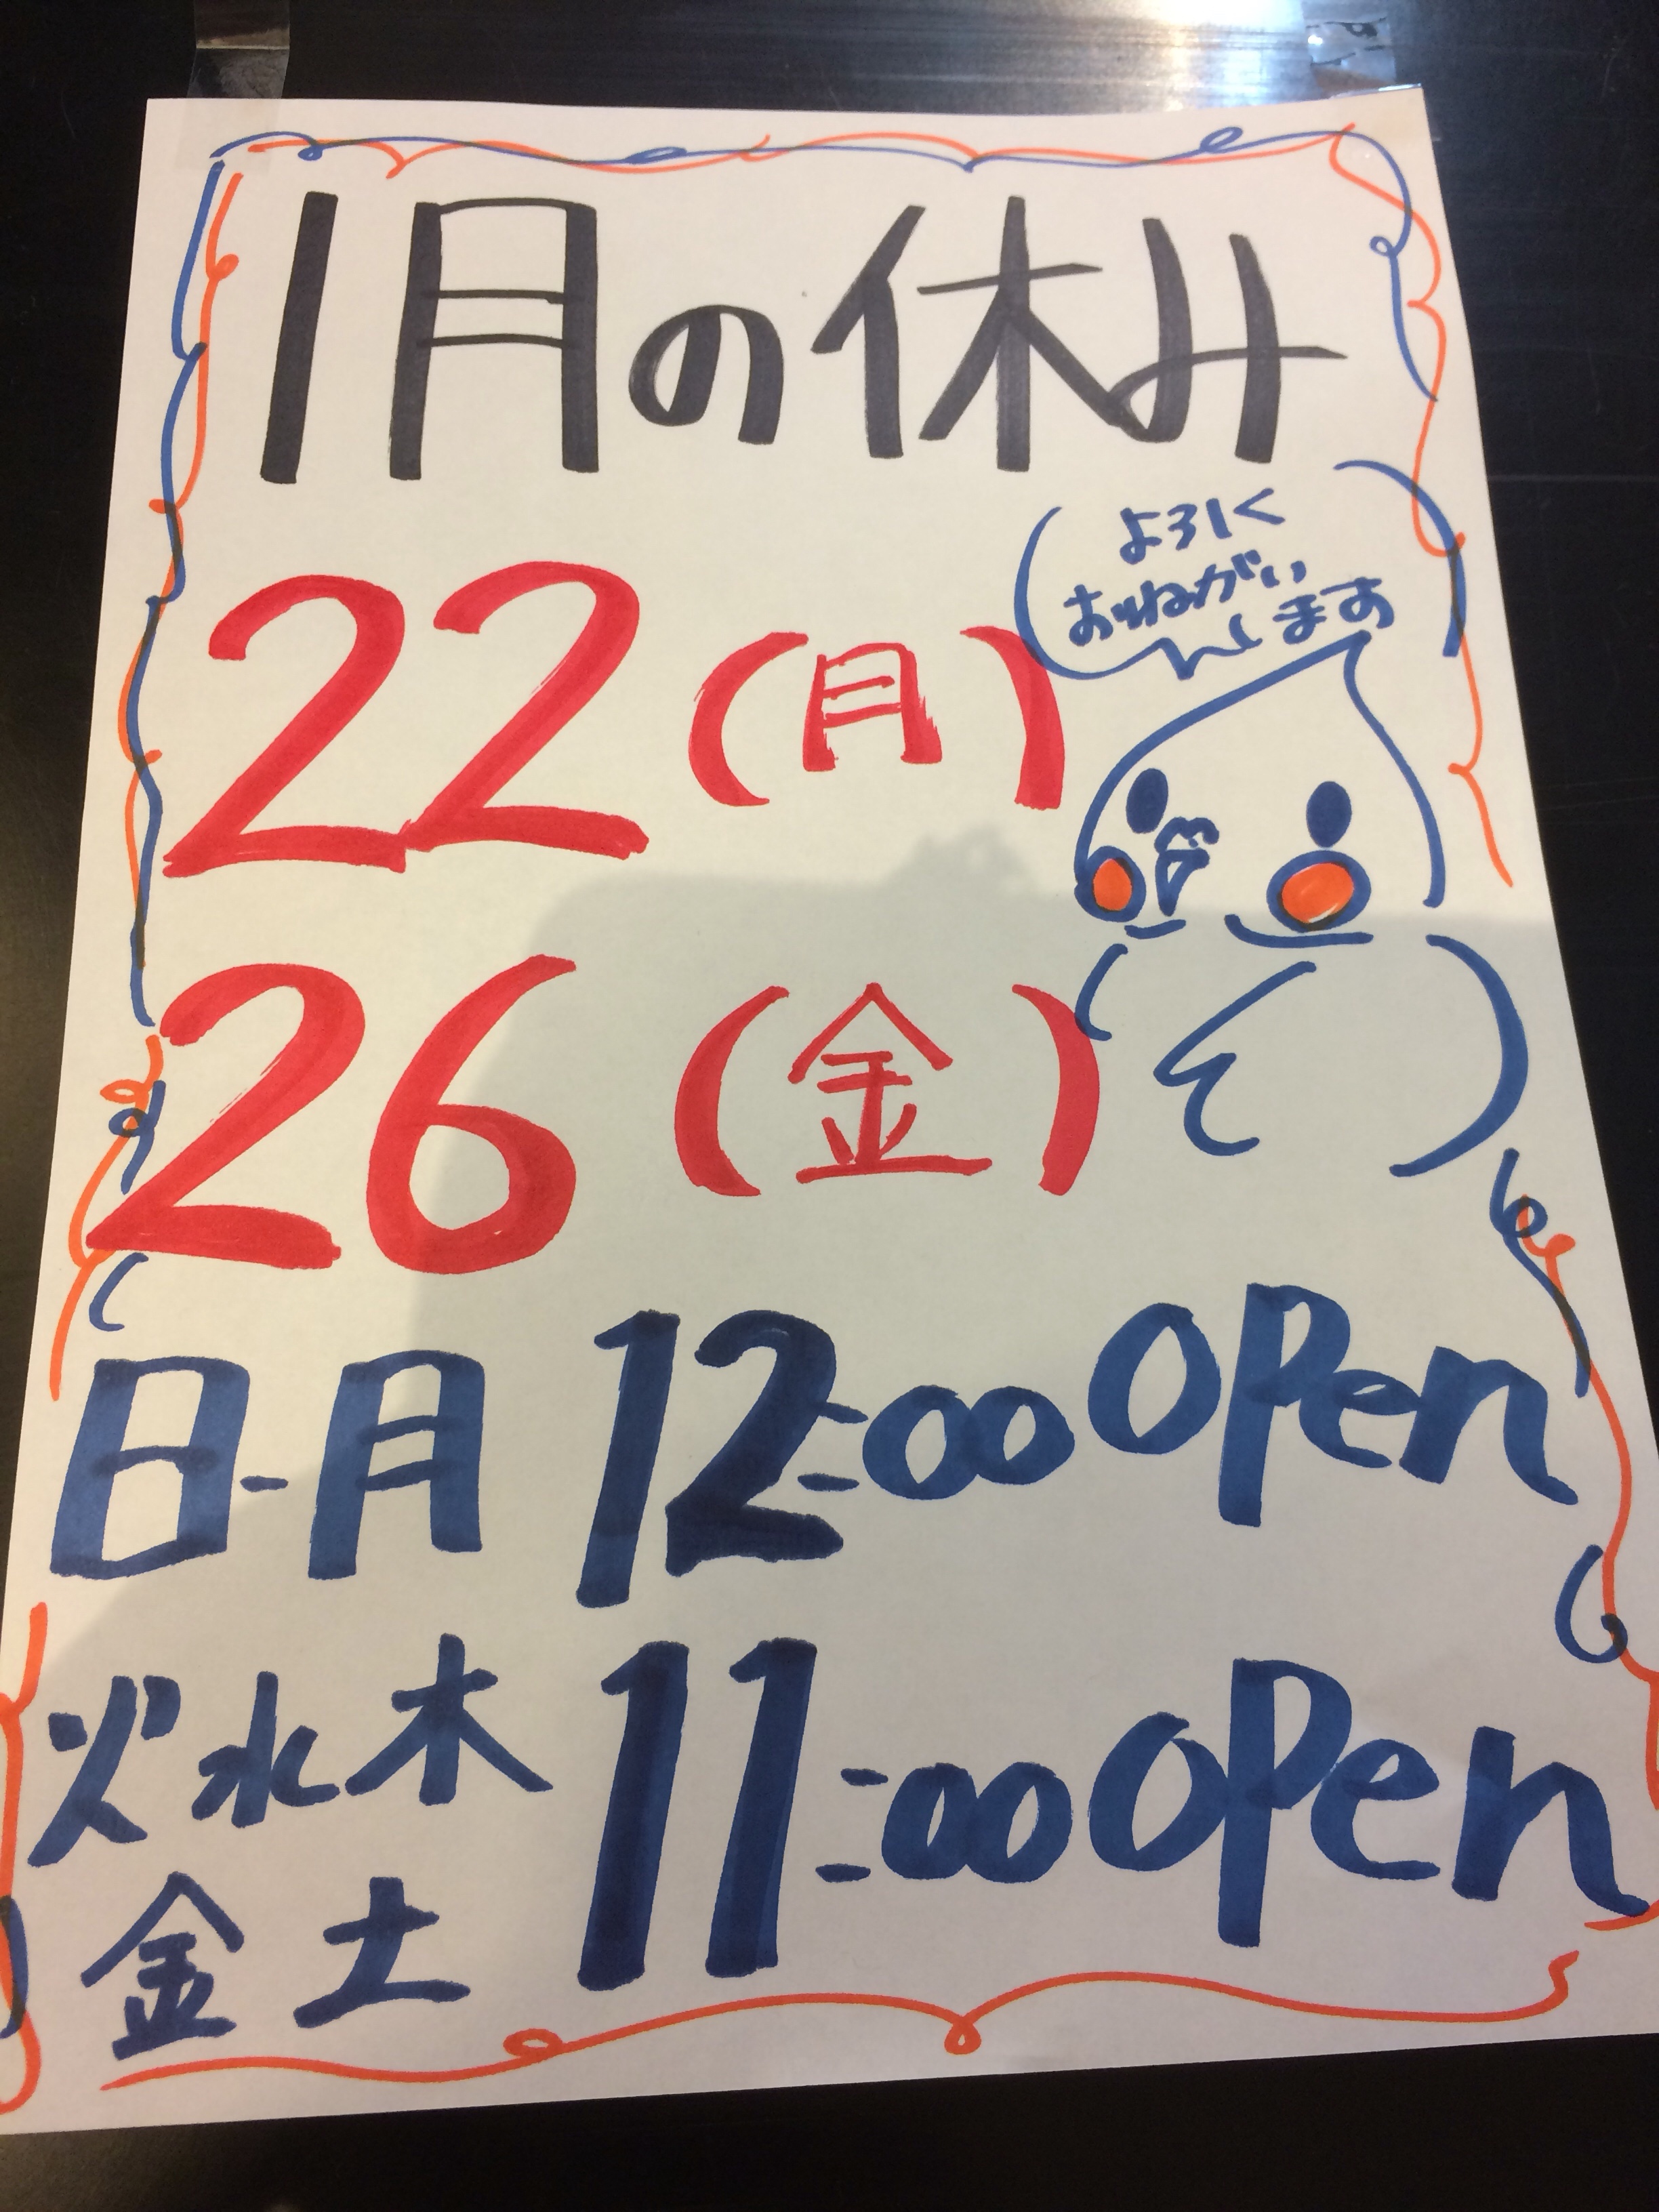 1月の休み
よろしく
おねがい
します
22(月)
26(金)
日-月 12:00 OPen
火水木
金土 11:00 OPen